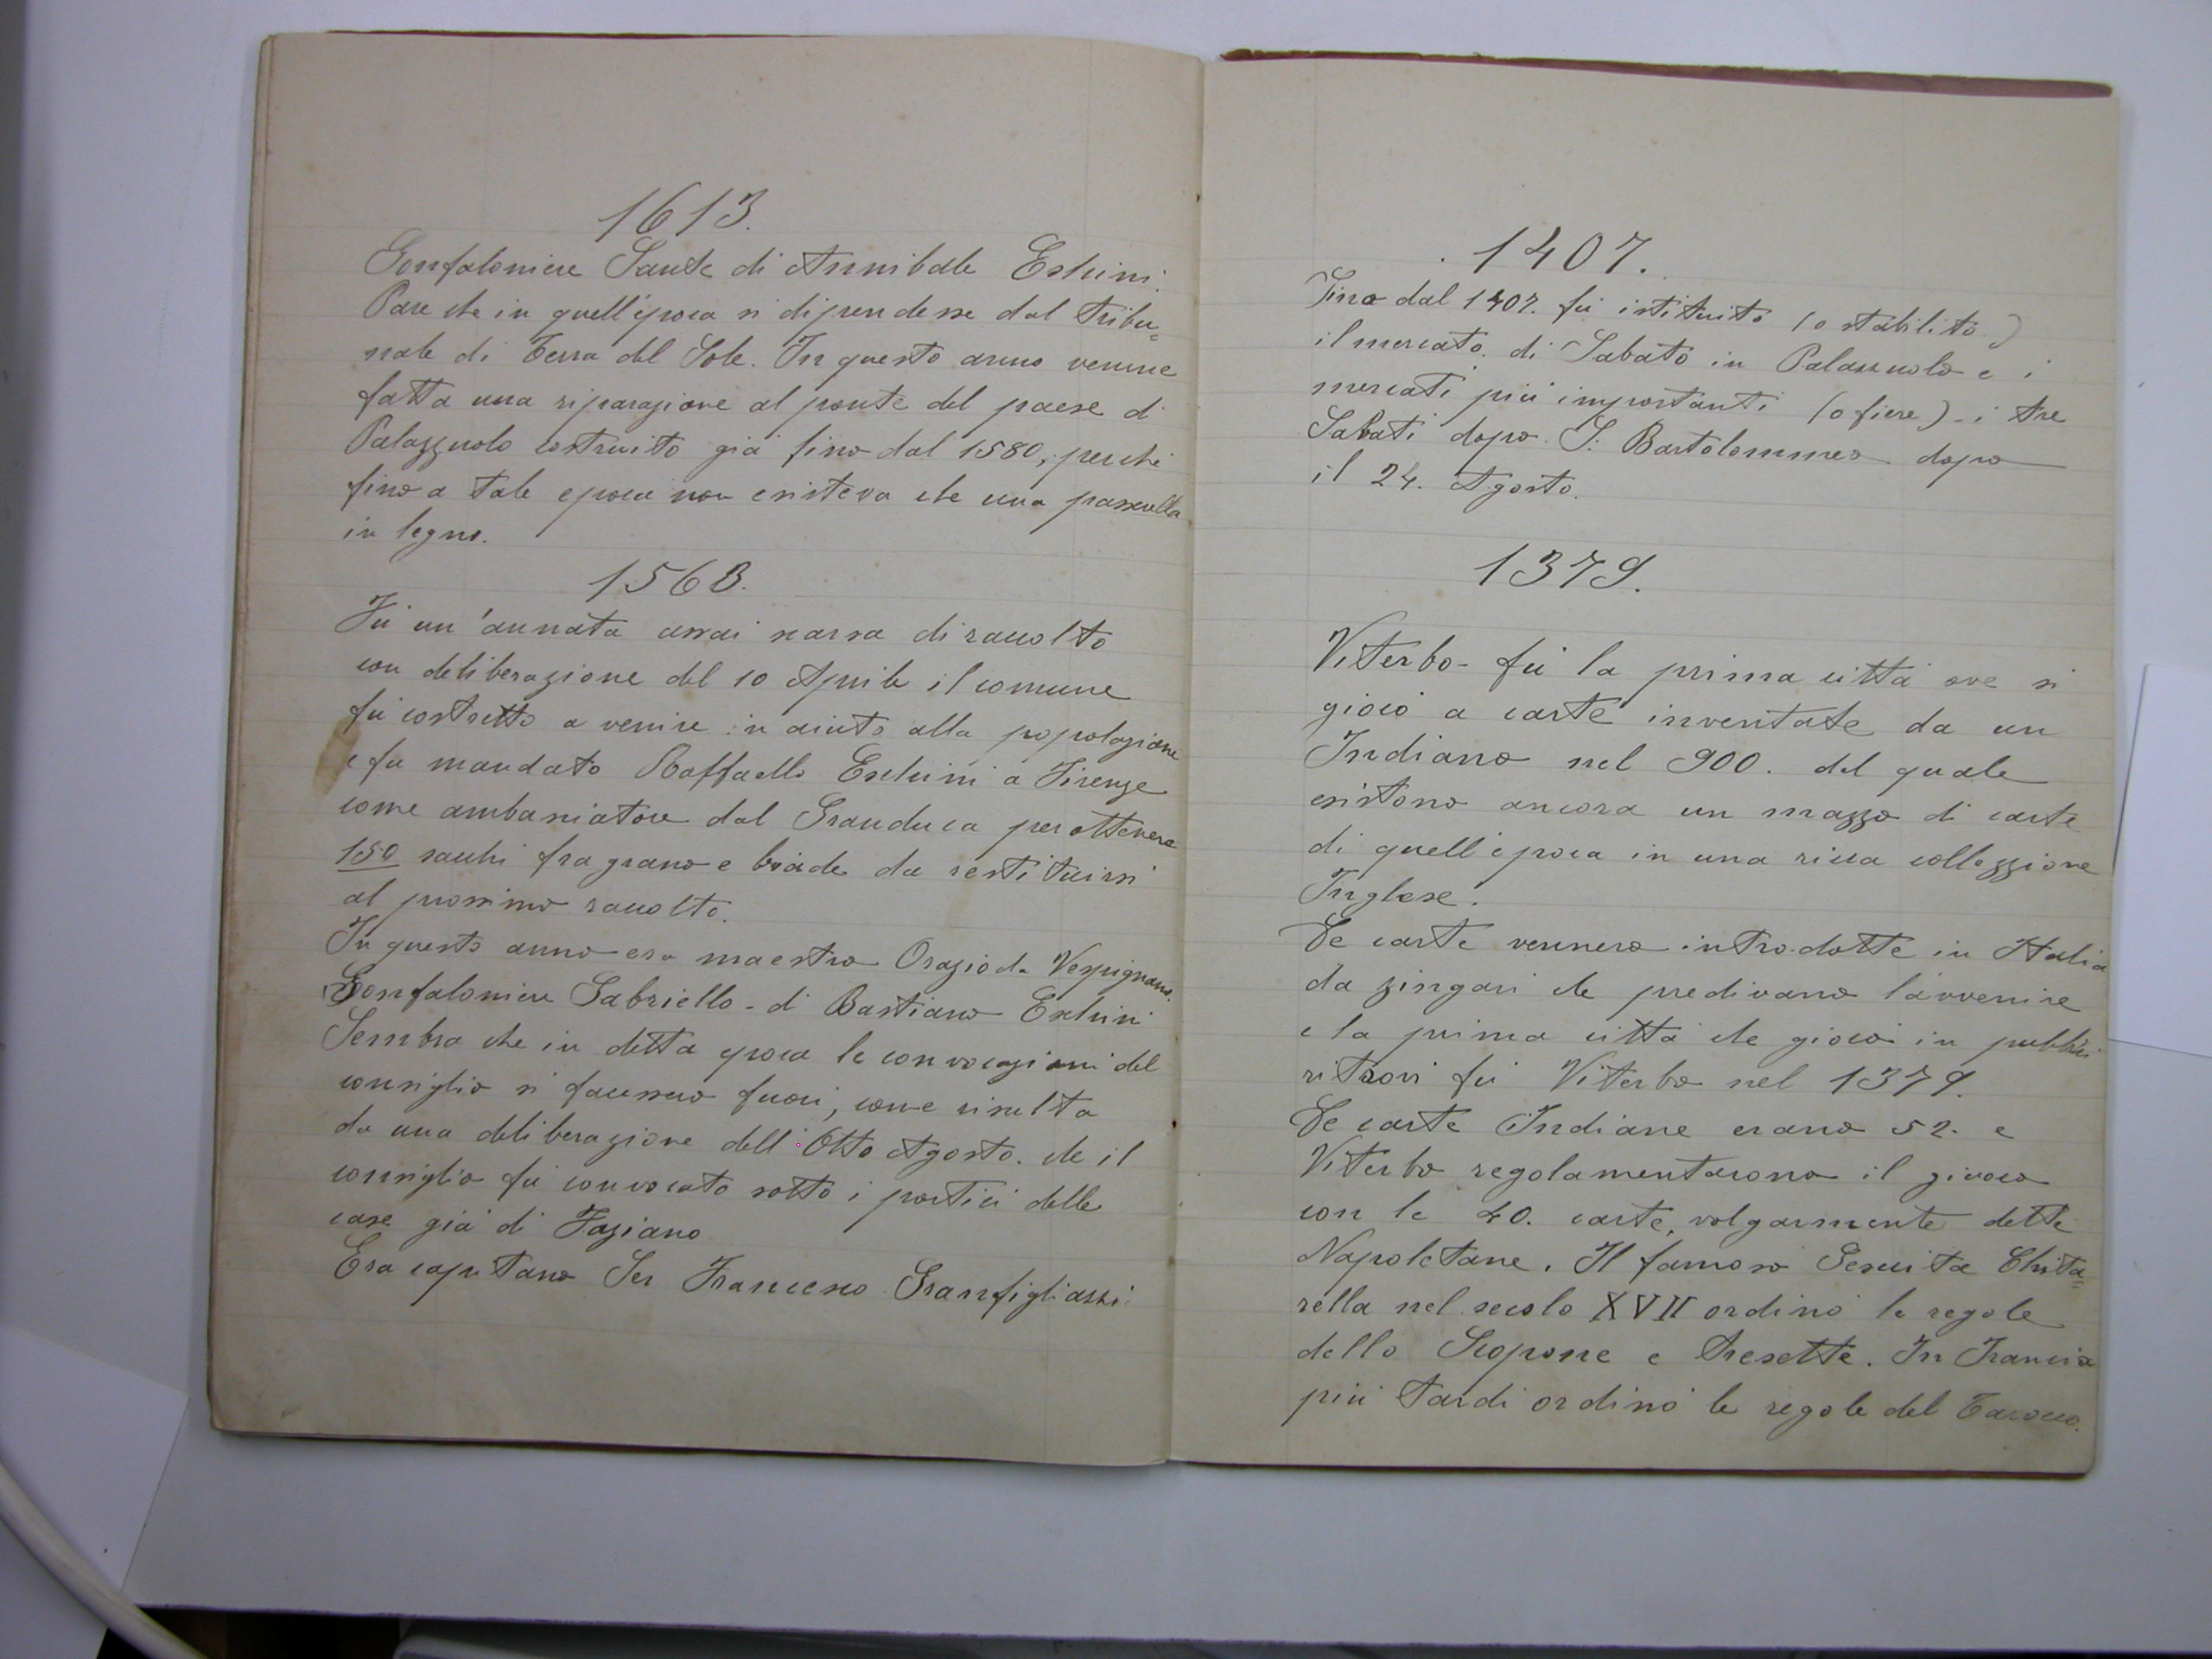 1613.
Gonfaloniere Sante di Annibale Eschini.
Pare che in quell'epoca si dipendesse dal tribu=
nale di Terra del Sole. In questo anno venne
fatta una riparazione al ponte del paese di
Palazzuolo costruito già fino dal 1580, perchè
fino a tale epoca non esisteva che una passerella
in legno.
1563.
Fù un'annata assai scarsa di raccolto
con deliberazione del 10 Aprile il comune
fù costretto a venire in aiuto alla popolazione
e fu mandato Raffaello Eschini a Firenze
come ambasciatore dal Granduca per ottenere
150 sacchi fra grano e biade da restituirsi
al prossimo raccolto.
In questo anno era maestro Orazio da Vespignano.
Gonfaloniere Gabriello - di Bastiano Eschini
Sembra che in detta epoca le convocazioni del
consiglio si facessero fuori, come risulta
da una deliberazione dell'Otto Agosto. che il
consiglio fù convocato sotto i portici delle
case già di Faziano
Era capitano Ser Francesco Granfigliazzi.
1407.
Fino dal 1407. fù istituito (o stabilito)
il mercato di Sabato in Palazzuolo e i
mercati più importanti (o fiere) - i tre
Sabati dopo S: Bartolommeo dopo
il 24. Agosto.
1379.
Viterbo - fù la prima città ove si
giocò a carte inventate da un
Indiano nel 900. del quale
esistono ancora un mazzo di carte
di quell'epoca in una ricca collezzione
Inglese.
Le carte vennero introdotte in Italia
da zingari che predivano l'avvenire
e la prima città che giocò in pubblici
ritrovi fù Viterbo nel 1379.
Le carte Indiane erano 52. e
Viterbo regolamentarono il giuoco
con le 40. carte, volgarmente dette
Napoletane. Il famoso Gesuita Chita=
rella nel secolo XVII ordinò le regole
dello Scopone e tresette. In Francia
più tardi ordinò le regole del Tarocco.